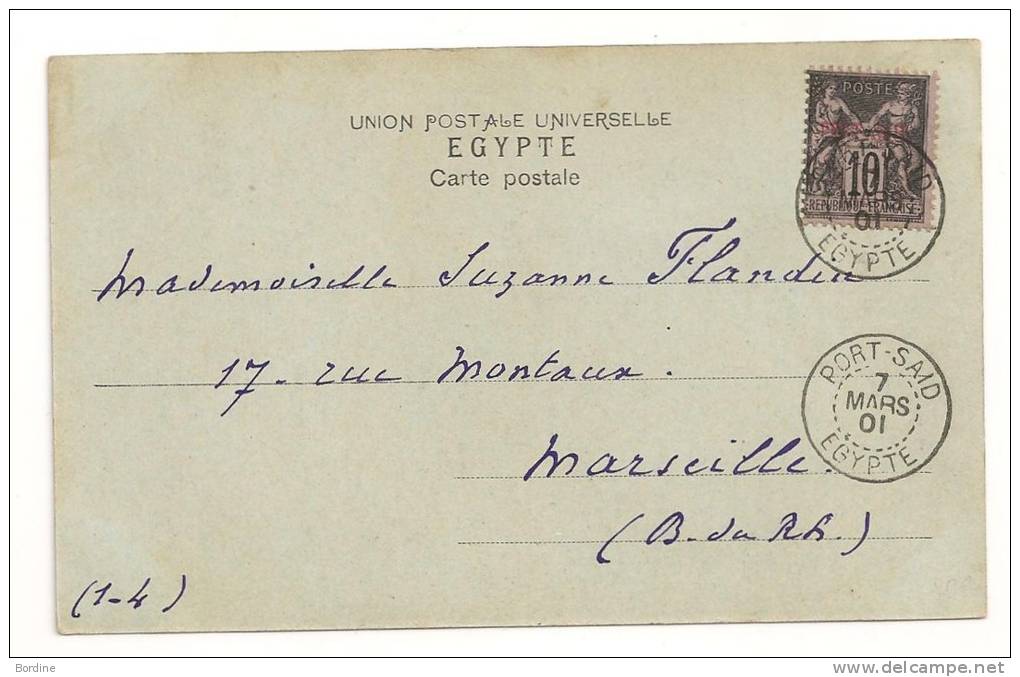 UNION POSTALE UNIVERSELLE
EGYPTE
Carte postale
POSTE
10
REPUBLIQUE FRANCAISE
01
EGYPTE
Mademoiselle Suzanne Flandin
17. rue Montaux.
Marseille.
(B. du Rh.)
(1-4)
PORT-SAID
7
MARS
01
EGYPTE
Bordine
www.delcampe.net